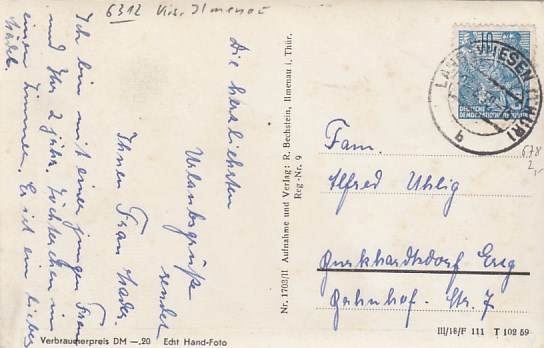 6312 Krs. Ilmenau
Die herzlichsten
Urlaubsgrüße
sendet
Ihnen Frau Hader.
Ich bin mit einer jungen Frau
und Ihr 2 jähr. Töchterchen im
einen Zimmer. Es ist ein liebes
Mädel.
Verbraucherpreis DM —,20 Echt Hand-Foto
Nr. 1703/II Aufnahme und Verlag: R. Bechstein, Ilmenau i. Thür.
Reg.-Nr. 9
10
DEUTSCHE
DEMOKRATISCHE REPUBLIK
LANGEWIESEN (THÜR)
b
678
2,-
Fam.
Alfred Uhlig
Burkhardtsdorf Erzg
Bahnhof-Str. 7
III/18/F 111 T 102 59